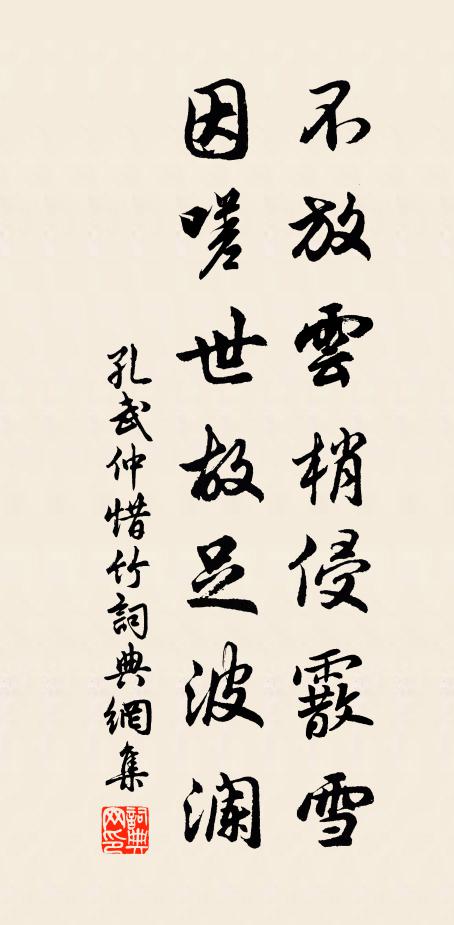 不放雲梢侵霰雪
因嗟世故足波瀾
孔武仲惜竹詞典網集
詞典网印